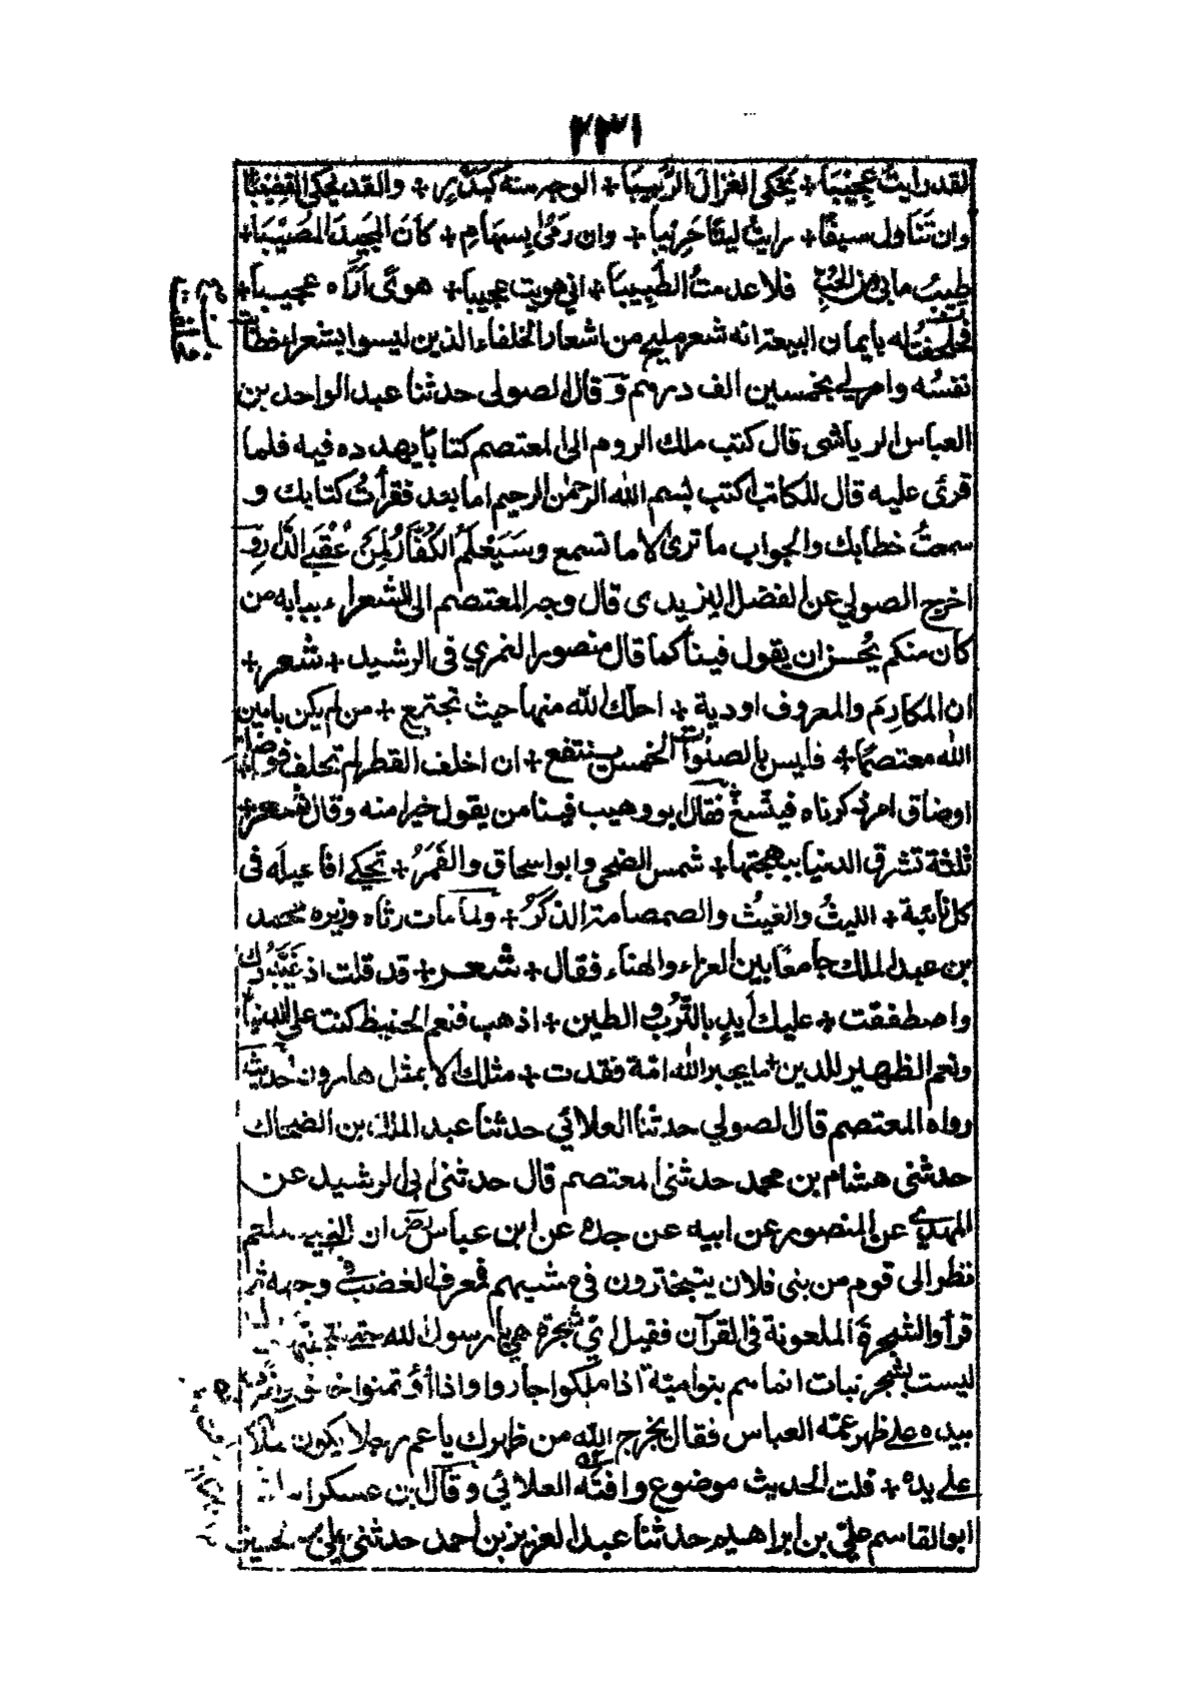 ٢٣١
لقد رايتُ عجيبَا + يحكى الغزال الرَّبيبَا + الوجه منه كبَدْرٍ + والقد يحكى القضيبَا
وان تَنَاول سيفًا + رايتُ ليثًا حَرِيْبا + وان رَمىٰ بِسِهَامٍ + كَانَ المجيدَ المُصيْبَا +
طبيبُ مابى من الحُبِّ فلا عدمتُ الطَّبِيبَا + اني هويت عجيبا + هوىً اَرَاه عجيبًا +
فحلفتُ له بأيمان البيعة انه شعر مليح من اشعار الخلفاء الذين ليسوا بشعراء فطابت
نفسُه وامر لي بخمسين الف درهم وقال الصولى حدثنا عبد الواحد بن
العباس الرياشى قال كتب ملك الروم الى المعتصم كتابًا يهدده فيه فلما
قرئ عليه قال للكاتب اكتب بسم الله الرحمٰن الرحيم اما بعد فقرأتُ كتابك و
سمعتُ خطابك والجواب ما ترىٰ لا ما تسمع وسَيَعْلَمُ الكُفَّارُ لِمَنْ عُقْبَى الدَّارِ و
اخرج الصولي عن الفضل اليزيدى قال وجه المعتصم الى الشعراء ببابه من
كان منكم يُحسن ان يقول فينا كما قال منصور النمري فى الرشيد + شعر +
ان المكارِمَ والمعروف اودية + احلك الله منها حيث تجتمع + من لم يكن بامين
الله معتصمًا + فليس بالصلوات الخمس ينتفع + ان اخلف القطر لم تخلف فواضله
اوضاق امر ذكرناه فيتسعُ فقال ابو وهيب فينا من يقول خيرا منه وقال شعر +
ثلثة تشرق الدنيا ببهجتها + شمس الضحى وابو اسحاق والقَمَرُ + تحكي افاعيله فى
كل نائبة + الليثُ والغيثُ والصمصامة الذكَرُ + ولما مات رثاه وزيره محمد
بن عبد الملك جامعًا بين العزاء والهناء فقال + شعر + قد قلت اذ غَيَّبُوك
واصطفقت + عليك اَيدٍ بالتُّرب والطين + اذهب فنعم الحفيظ كنت على الدنيا
ونعم الظهير للدين + ما يجبر الله امّة فقدت + مثلك الا بمثل هارون حديث
رواه المعتصم قال الصولي حدثنا العلائي حدثنا عبد الملك بن الضحاك
حدثنى هشام بن محمد حدثنى المعتصم قال حدثنى ابى الرشيد عن
المهدي عن المنصور عن ابيه عن جده عن ابن عباس رض ان النبي صلعم
نظر الى قوم من بنى فلان يتبخترون في مشيهم فعرف الغضب في وجهه ثم
قرأ والشجرة الملعونة فى القرآن فقيل اي شجرة هي يا رسول الله
ليست بشجر نبات انما هم بنو امية اذا ملكوا جاروا واذا اؤتمنوا خانوا
بيده على ظهر عمه العباس فقال يخرج الله من ظهرك يا عم رجلا يكون هلاكهم
على يده + قلت الحديث موضوع وافته العلائي وقال ابن عساكر
ابو القاسم علي بن ابراهيم حدثنا عبد العزيز بن احمد حدثني علي بن الحسين